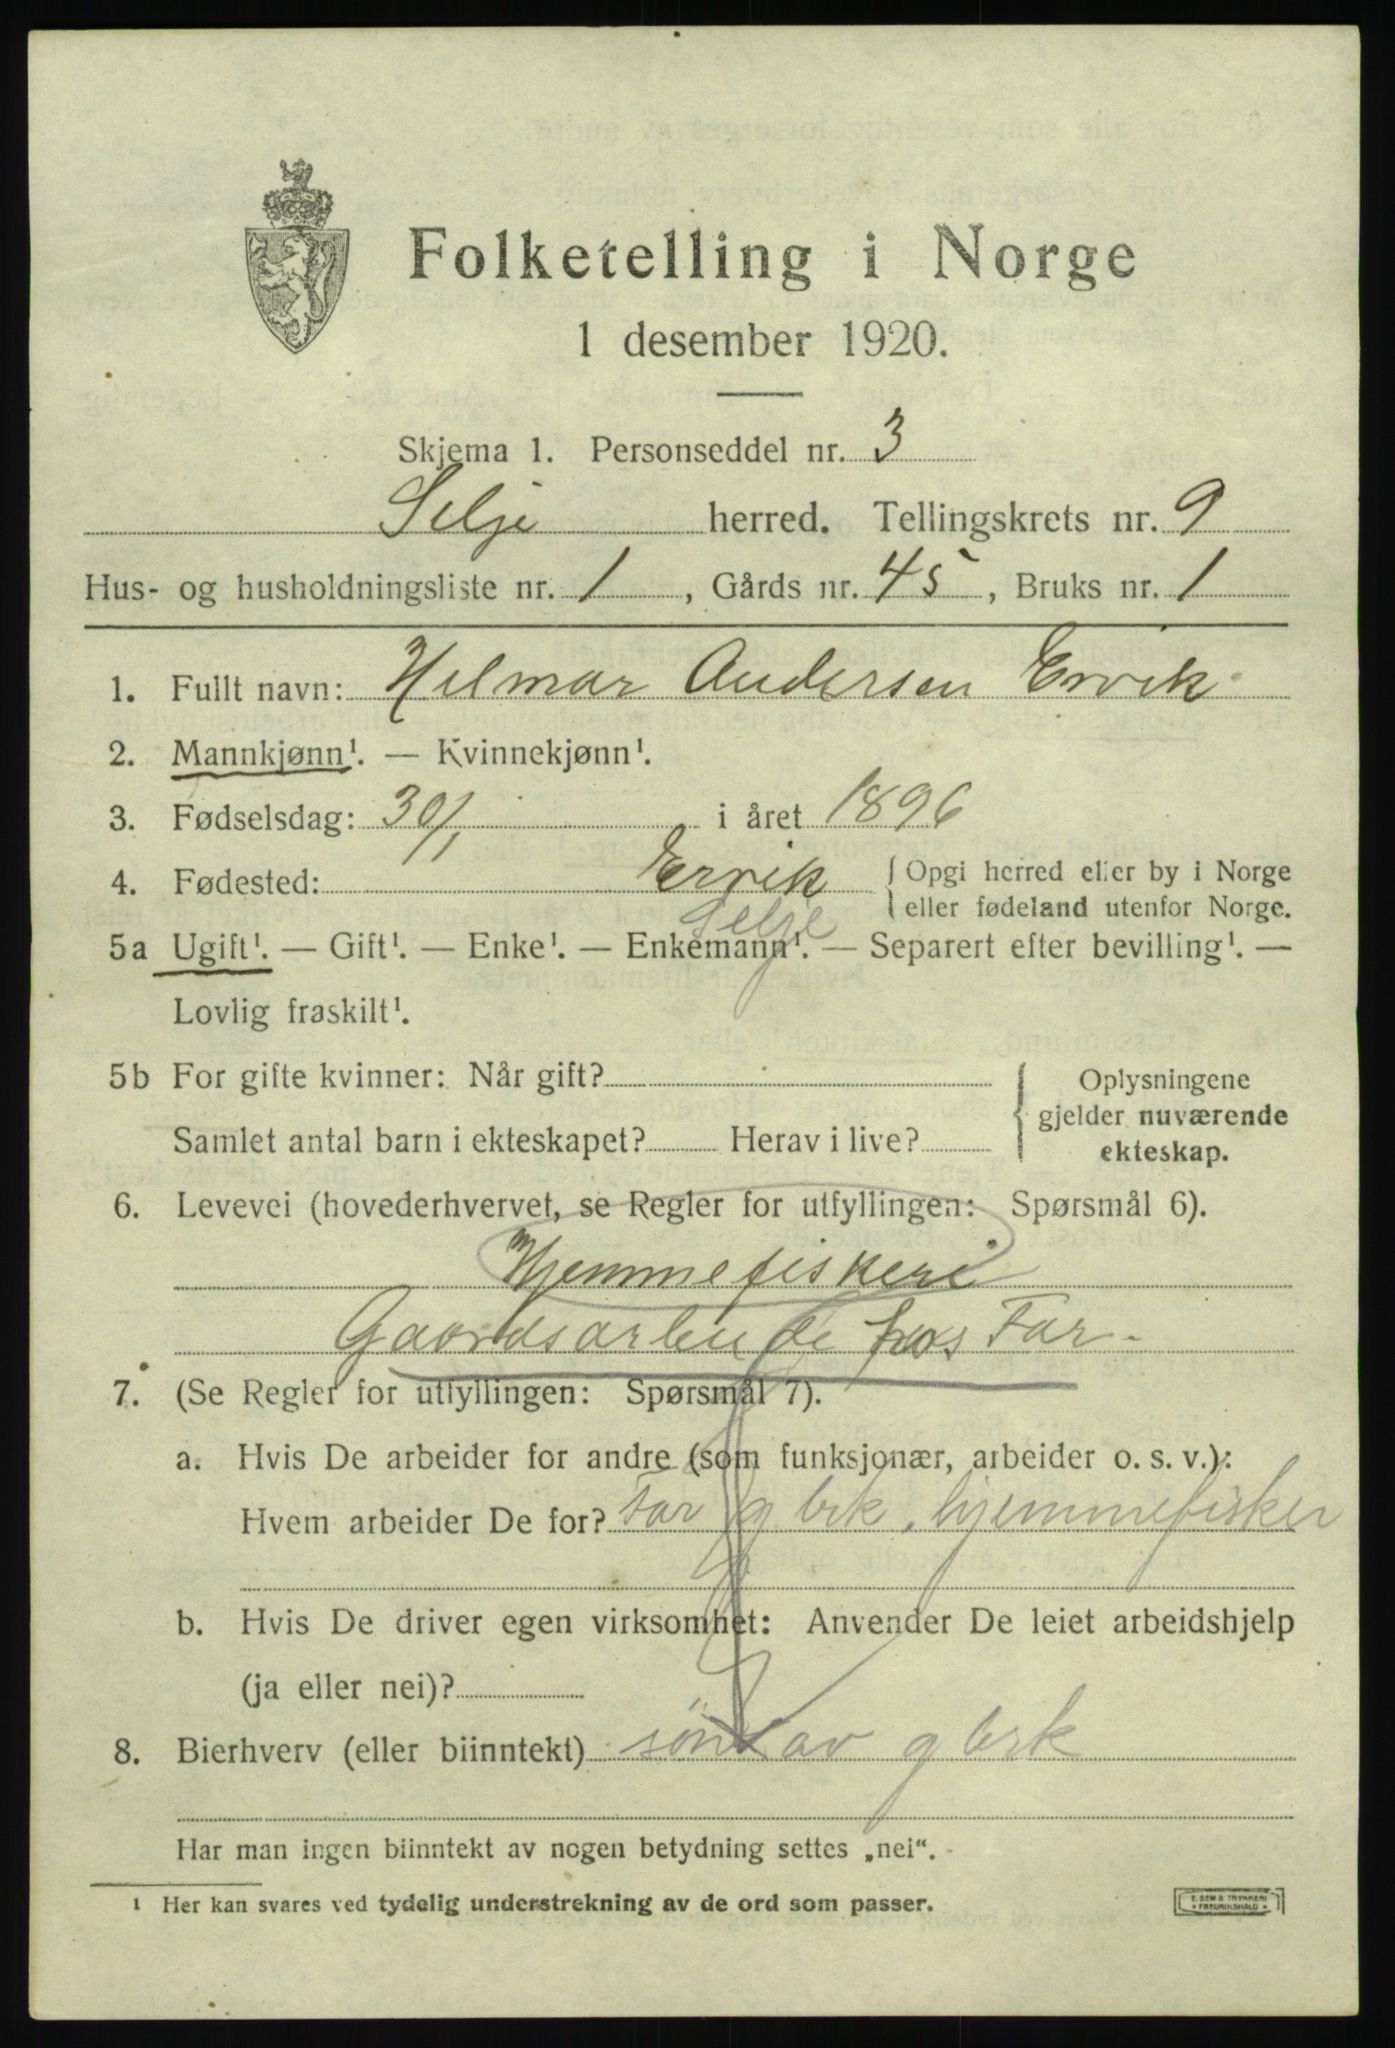 Folketelling i Norge
1 desember 1920.
Skjema 1. Personseddel nr. 3
Selje herred. Tellingskrets nr. 9
Hus- og husholdningsliste nr. 1, Gårds nr. 45, Bruks nr. 1
1. Fullt navn: Hilmar Andersen Ervik
2. Mannkjønn¹. — Kvinnekjønn¹.
3. Fødselsdag: 30/1 i året 1896
4. Fødested: Ervik { Opgi herred eller by i Norge
eller fødeland utenfor Norge.
Selje
5a Ugift¹. — Gift¹. — Enke¹. — Enkemann¹. — Separert efter bevilling¹. —
Lovlig fraskilt¹.
5b For gifte kvinner: Når gift? { Oplysningene
gjelder nuværende
Samlet antal barn i ekteskapet? Herav i live? ekteskap.
6. Levevei (hovederhvervet, se Regler for utfyllingen: Spørsmål 6).
Hjemmefiskeri
Gaardsarbeide hos Far.
7. (Se Regler for utfyllingen: Spørsmål 7).
a. Hvis De arbeider for andre (som funksjonær, arbeider o. s. v.):
Hvem arbeider De for? Far g brk. hjemmefisker
b. Hvis De driver egen virksomhet: Anvender De leiet arbeidshjelp
(ja eller nei)?
8. Bierhverv (eller biinntekt) søn av g brk
Har man ingen biinntekt av nogen betydning settes „nei“.
¹ Her kan svares ved tydelig understrekning av de ord som passer.
E. SEM'S TRYKKERI
FREDRIKSHALD